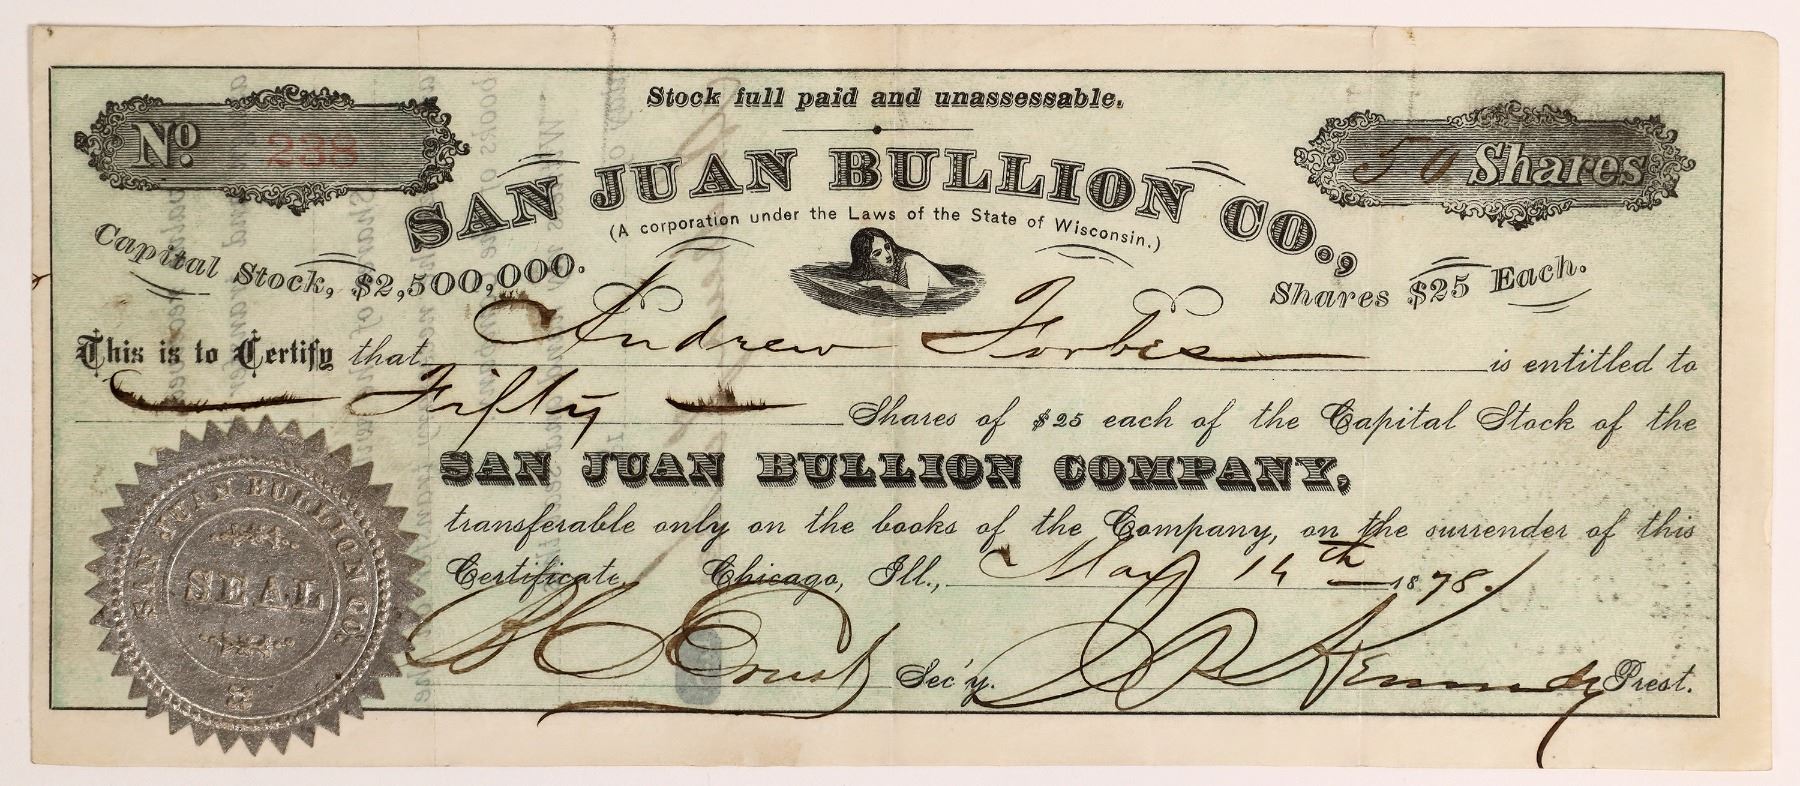 Stock full paid and unassessable.
No. 238
50 Shares
SAN JUAN BULLION CO.,
(A corporation under the Laws of the State of Wisconsin.)
Capital Stock, $2,500,000.
Shares $25 Each.
This is to Certify that Andrew Forbes is entitled to
Fifty Shares of $25 each of the Capital Stock of the
SAN JUAN BULLION COMPANY,
transferable only on the books of the Company, on the surrender of this
Certificate. Chicago, Ill., May 14th 1878.
Sec'y. Kennedy Prest.
SAN JUAN BULLION CO.
SEAL